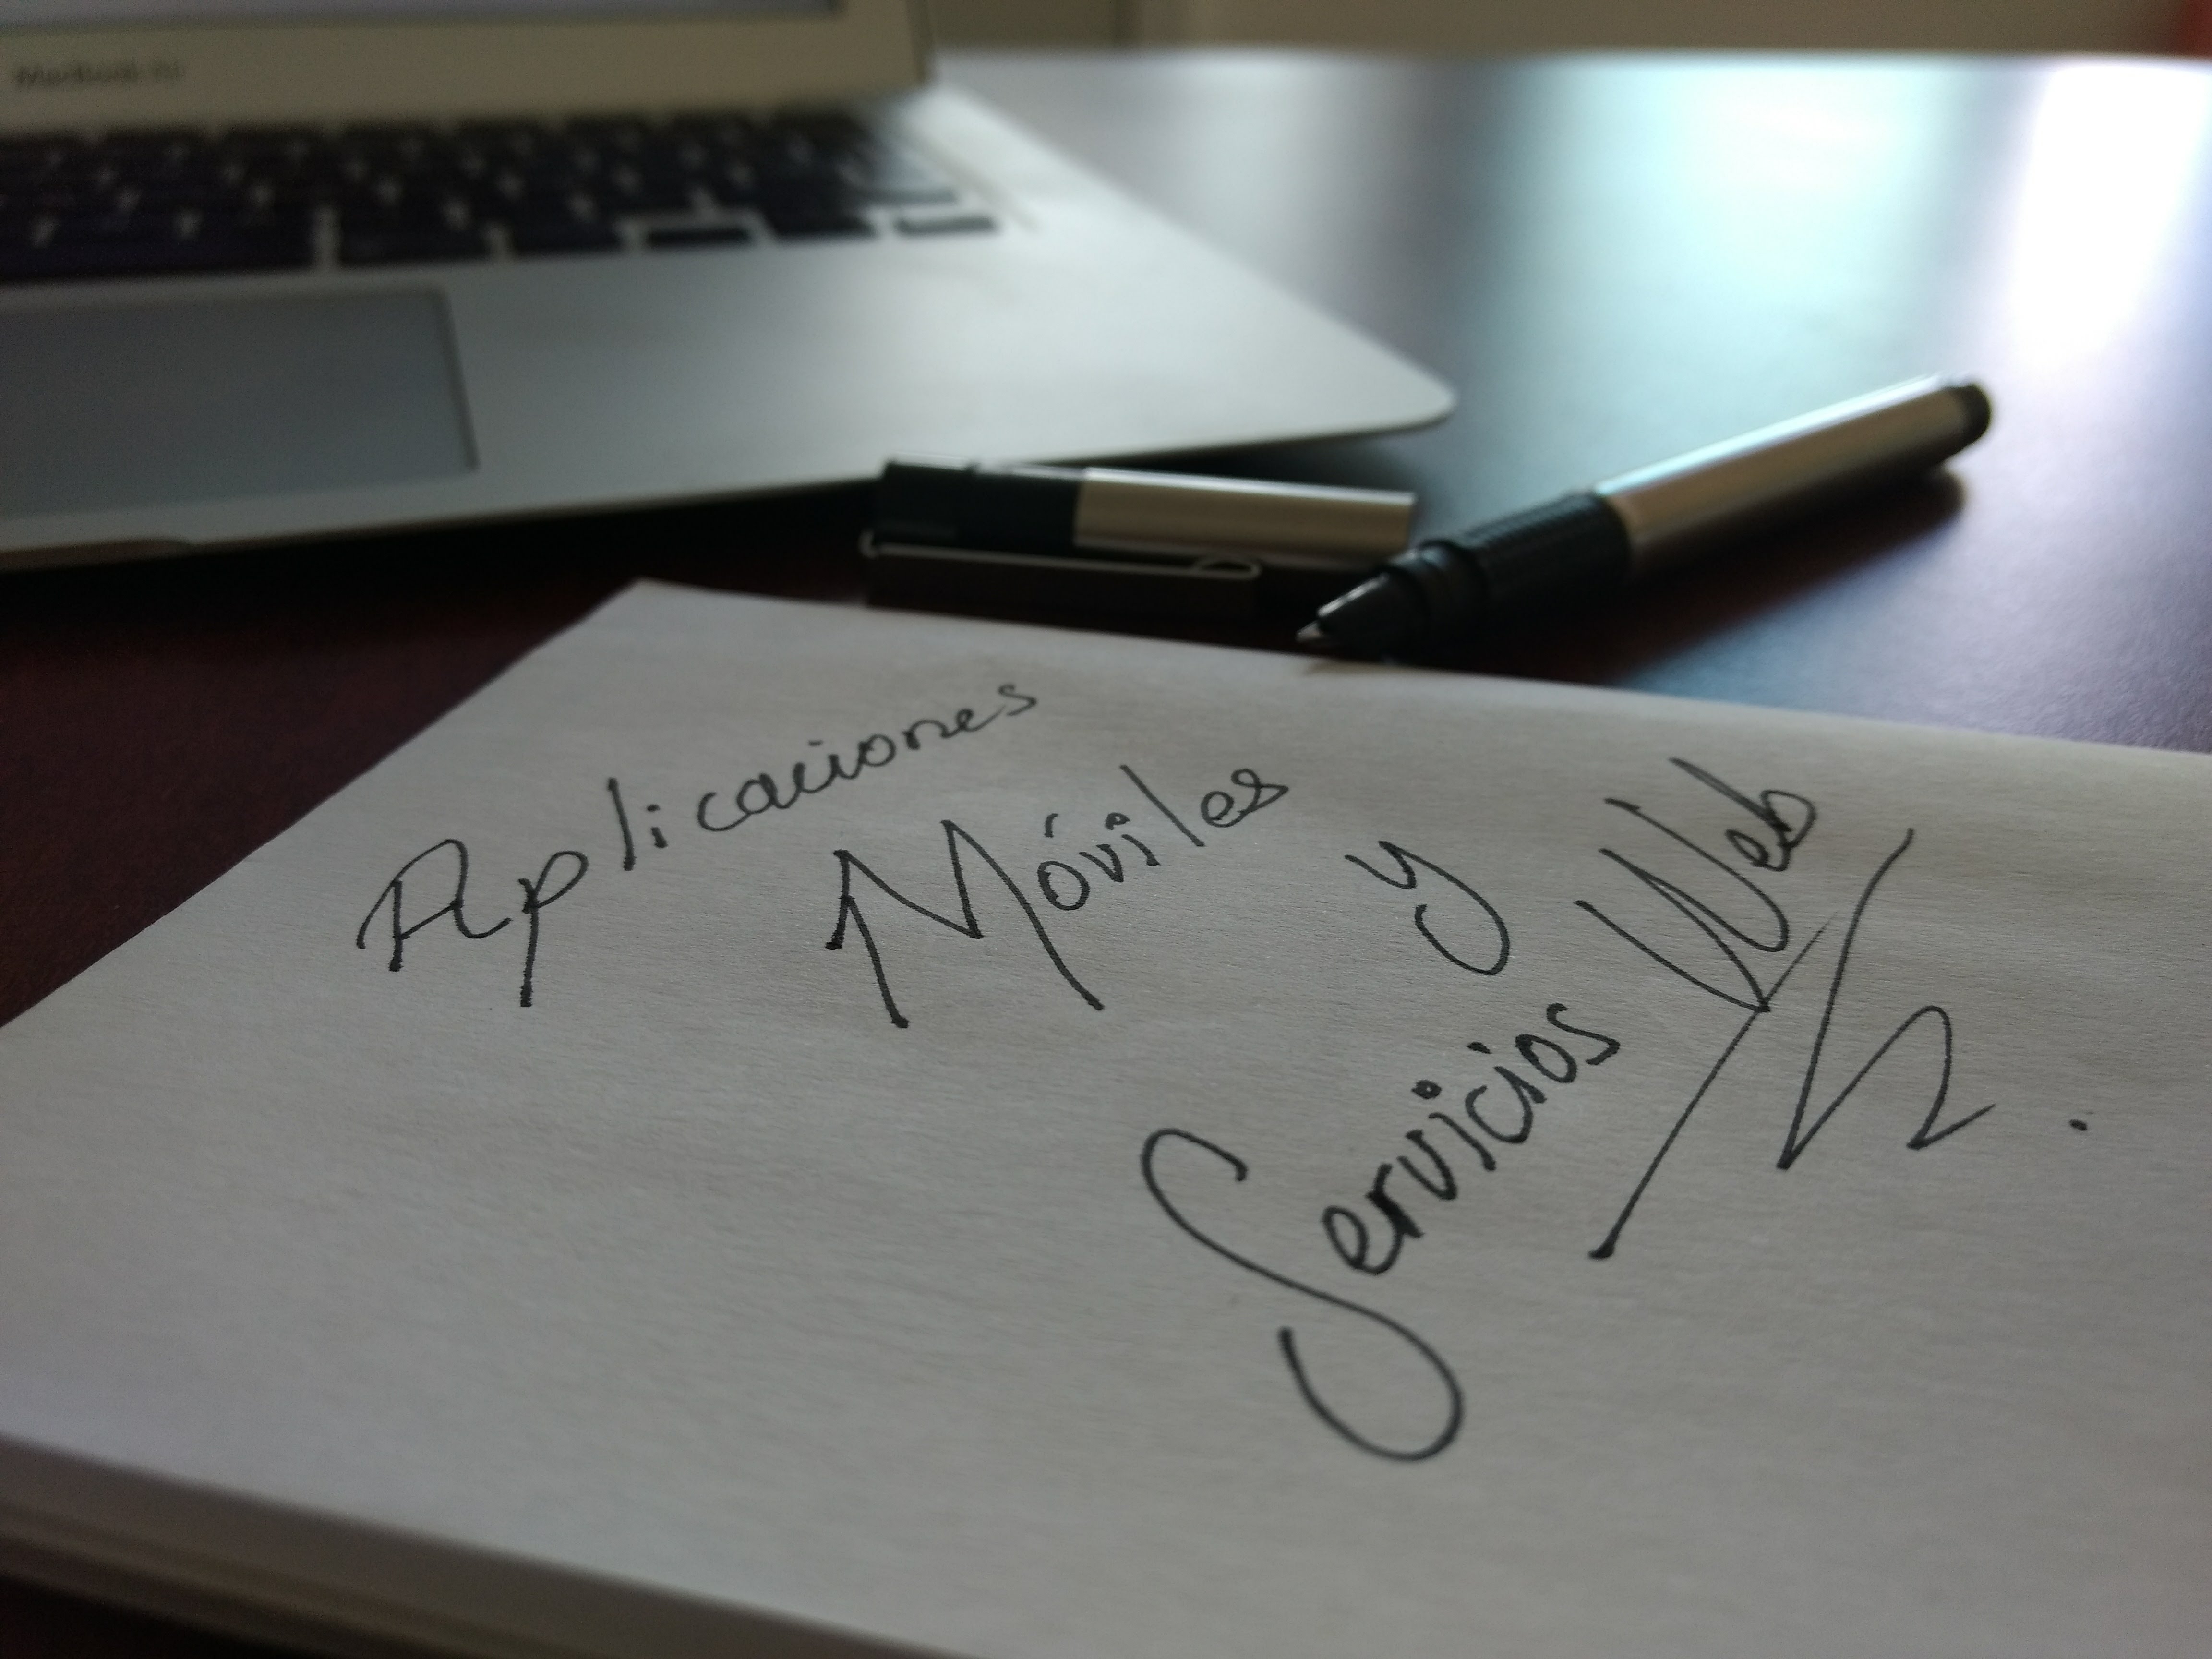 MacBook Air
Aplicaciones
Móviles y
Servicios Web